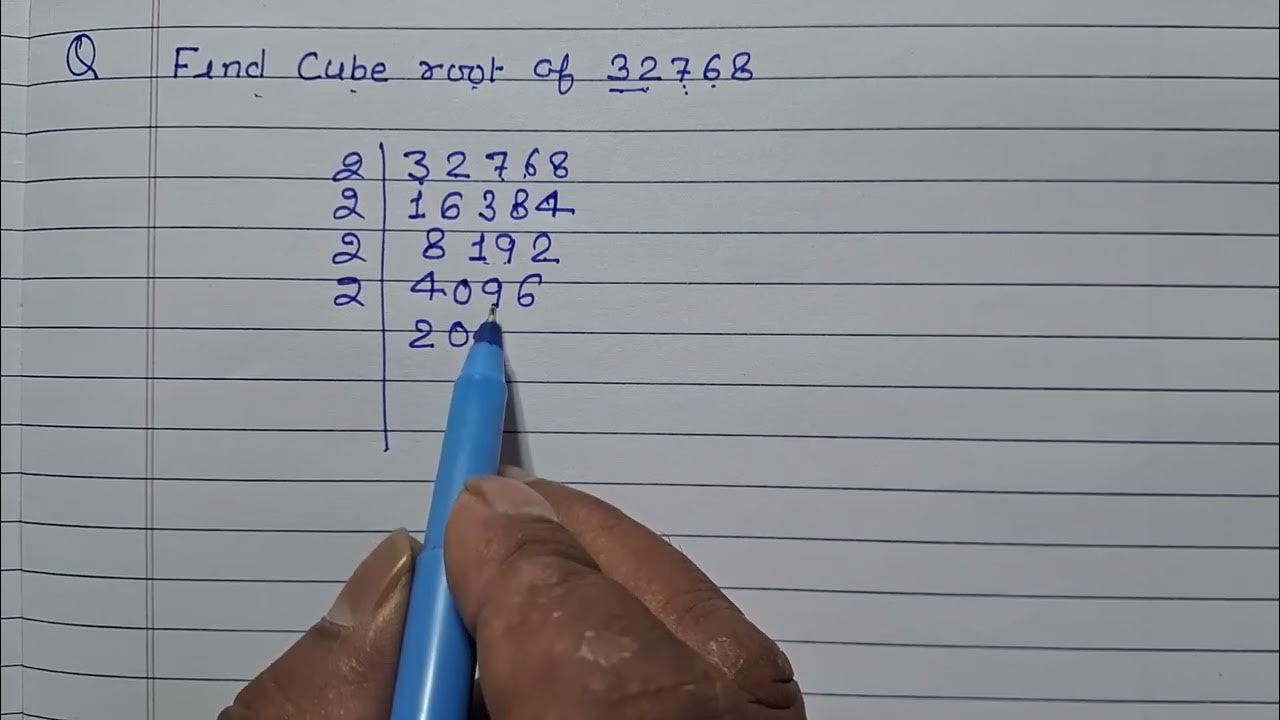 Q Find Cube root of 32768
2 32768
2 16384
2 8192
2 4096
20